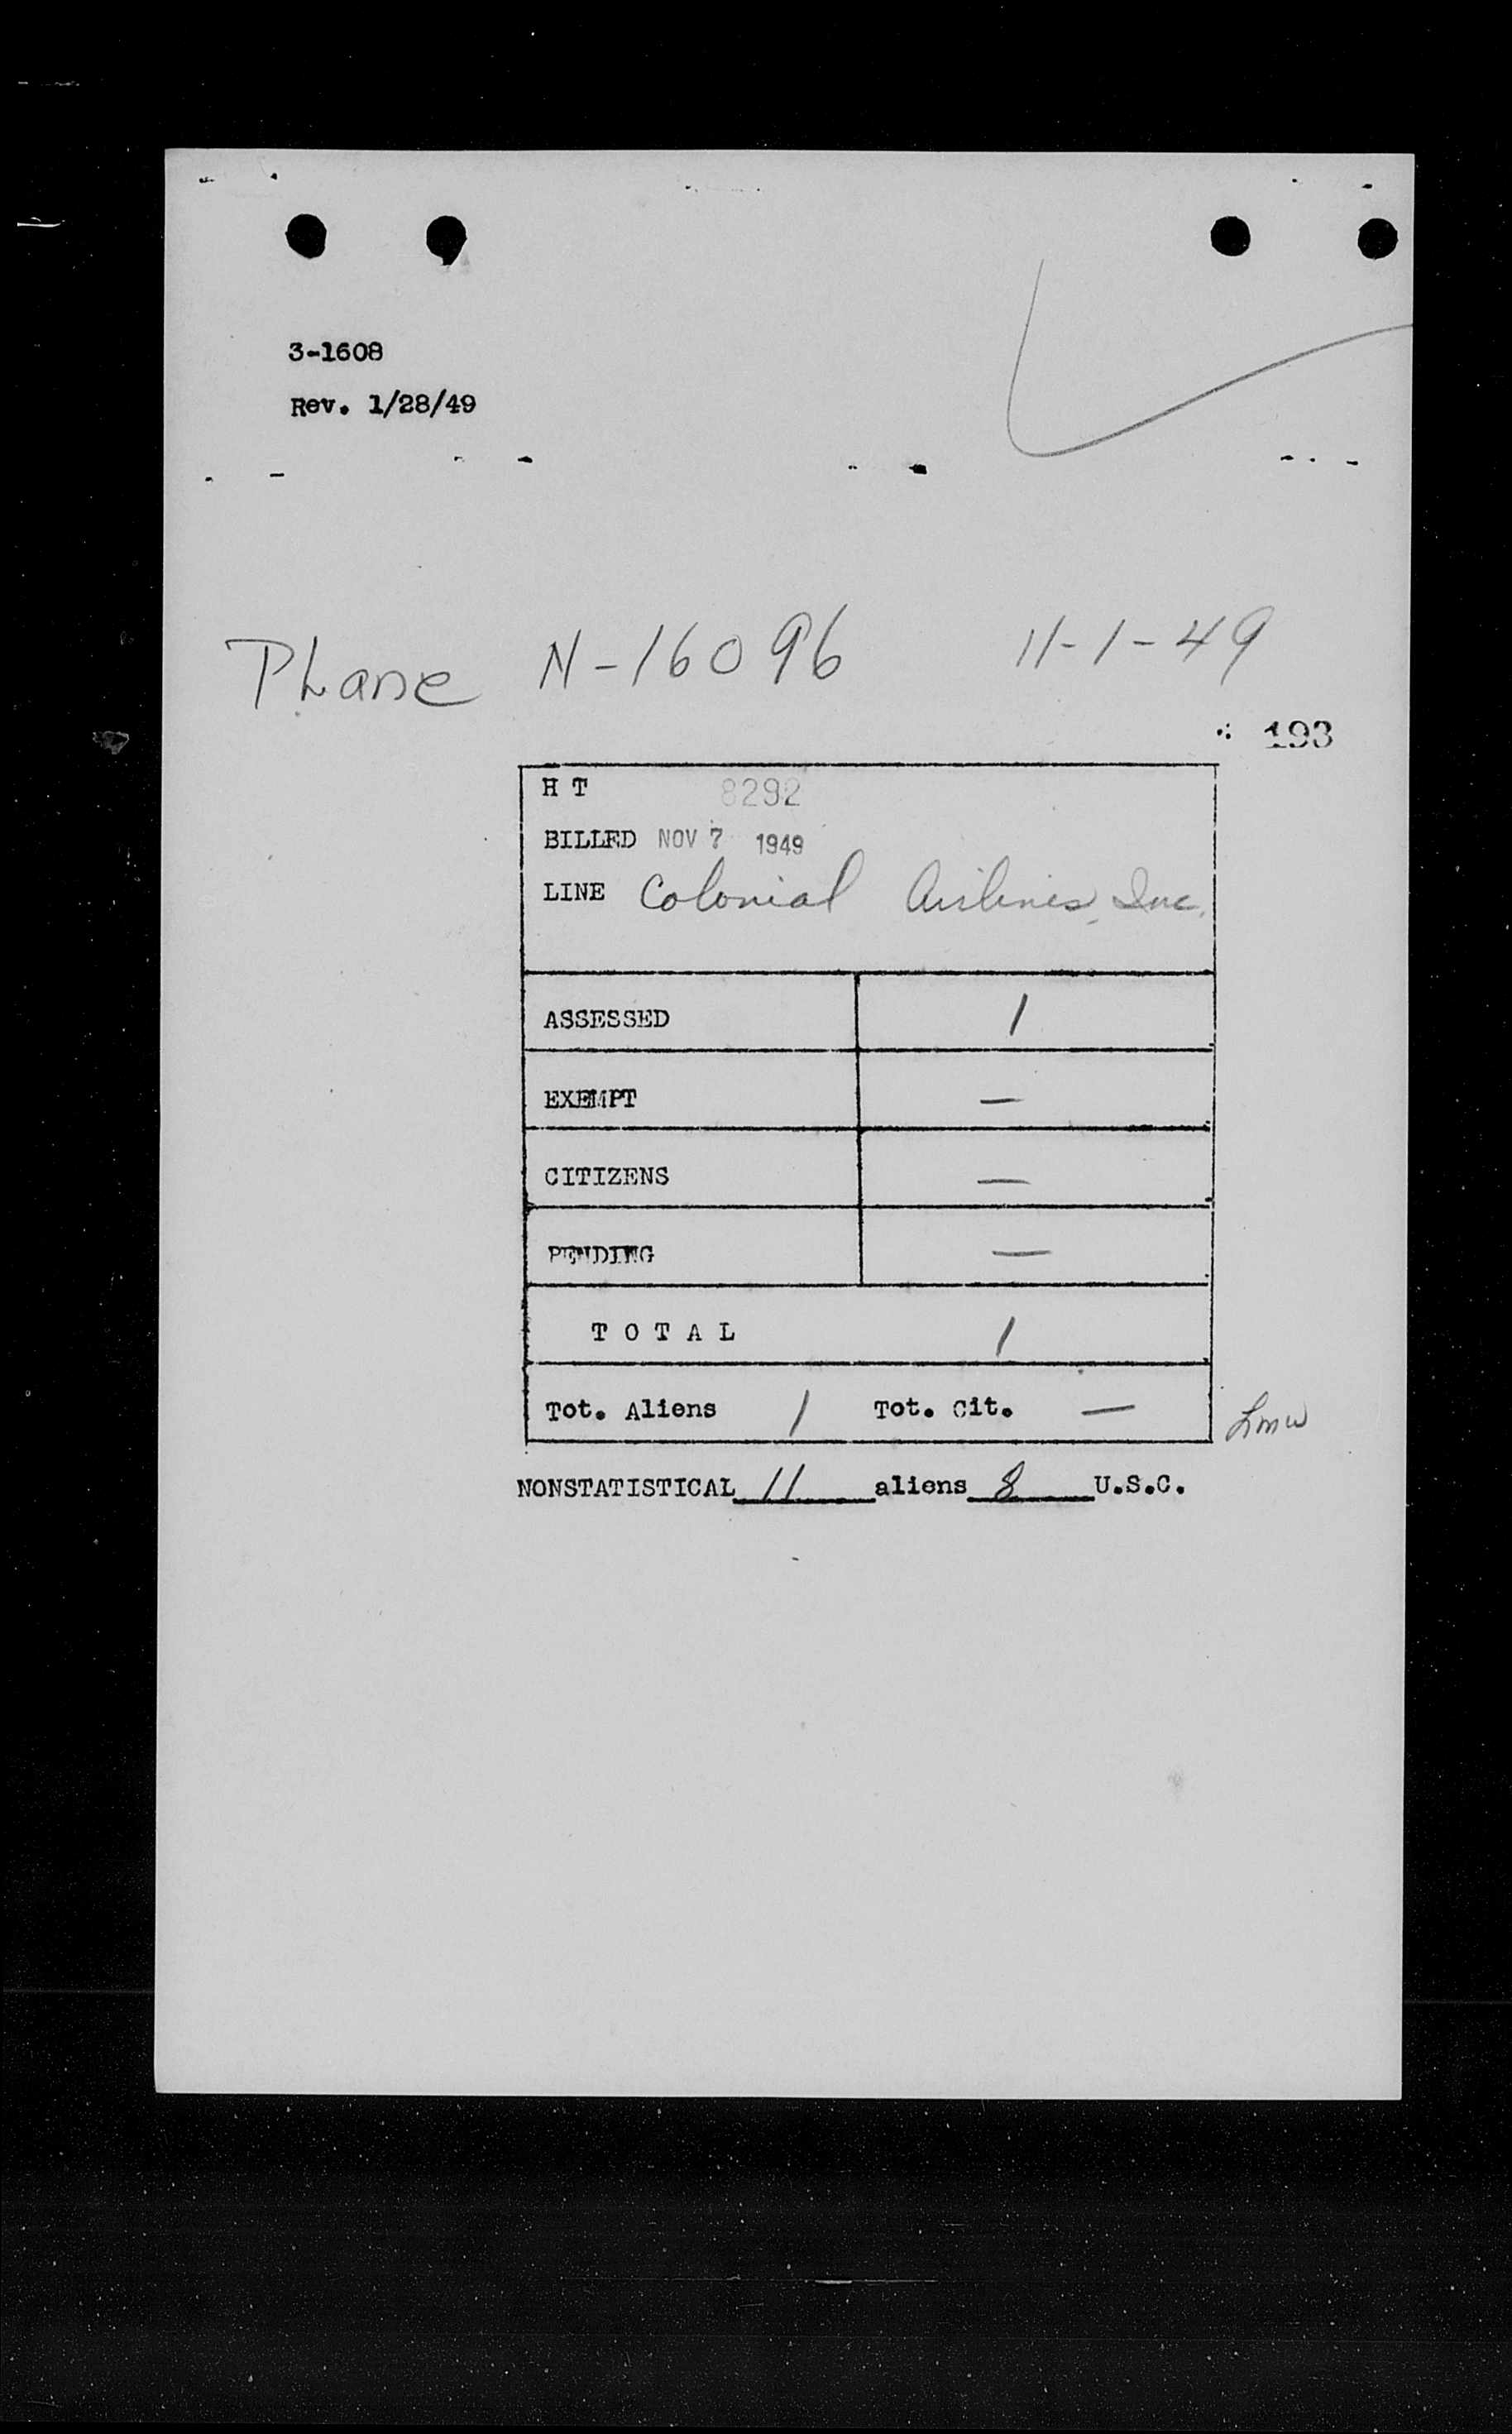 3-1608
Rev. 1/28/49
PLane N-16096 11-1-49
193
H T 8292
BILLED NOV 7 1949
LINE Colonial Airlines, Inc.
ASSESSED 1
EXEMPT —
CITIZENS —
PENDING —
T O T A L 1
Tot. Aliens 1 Tot. Cit. —
Lmw
NONSTATISTICAL 11 aliens 8 U.S.C.